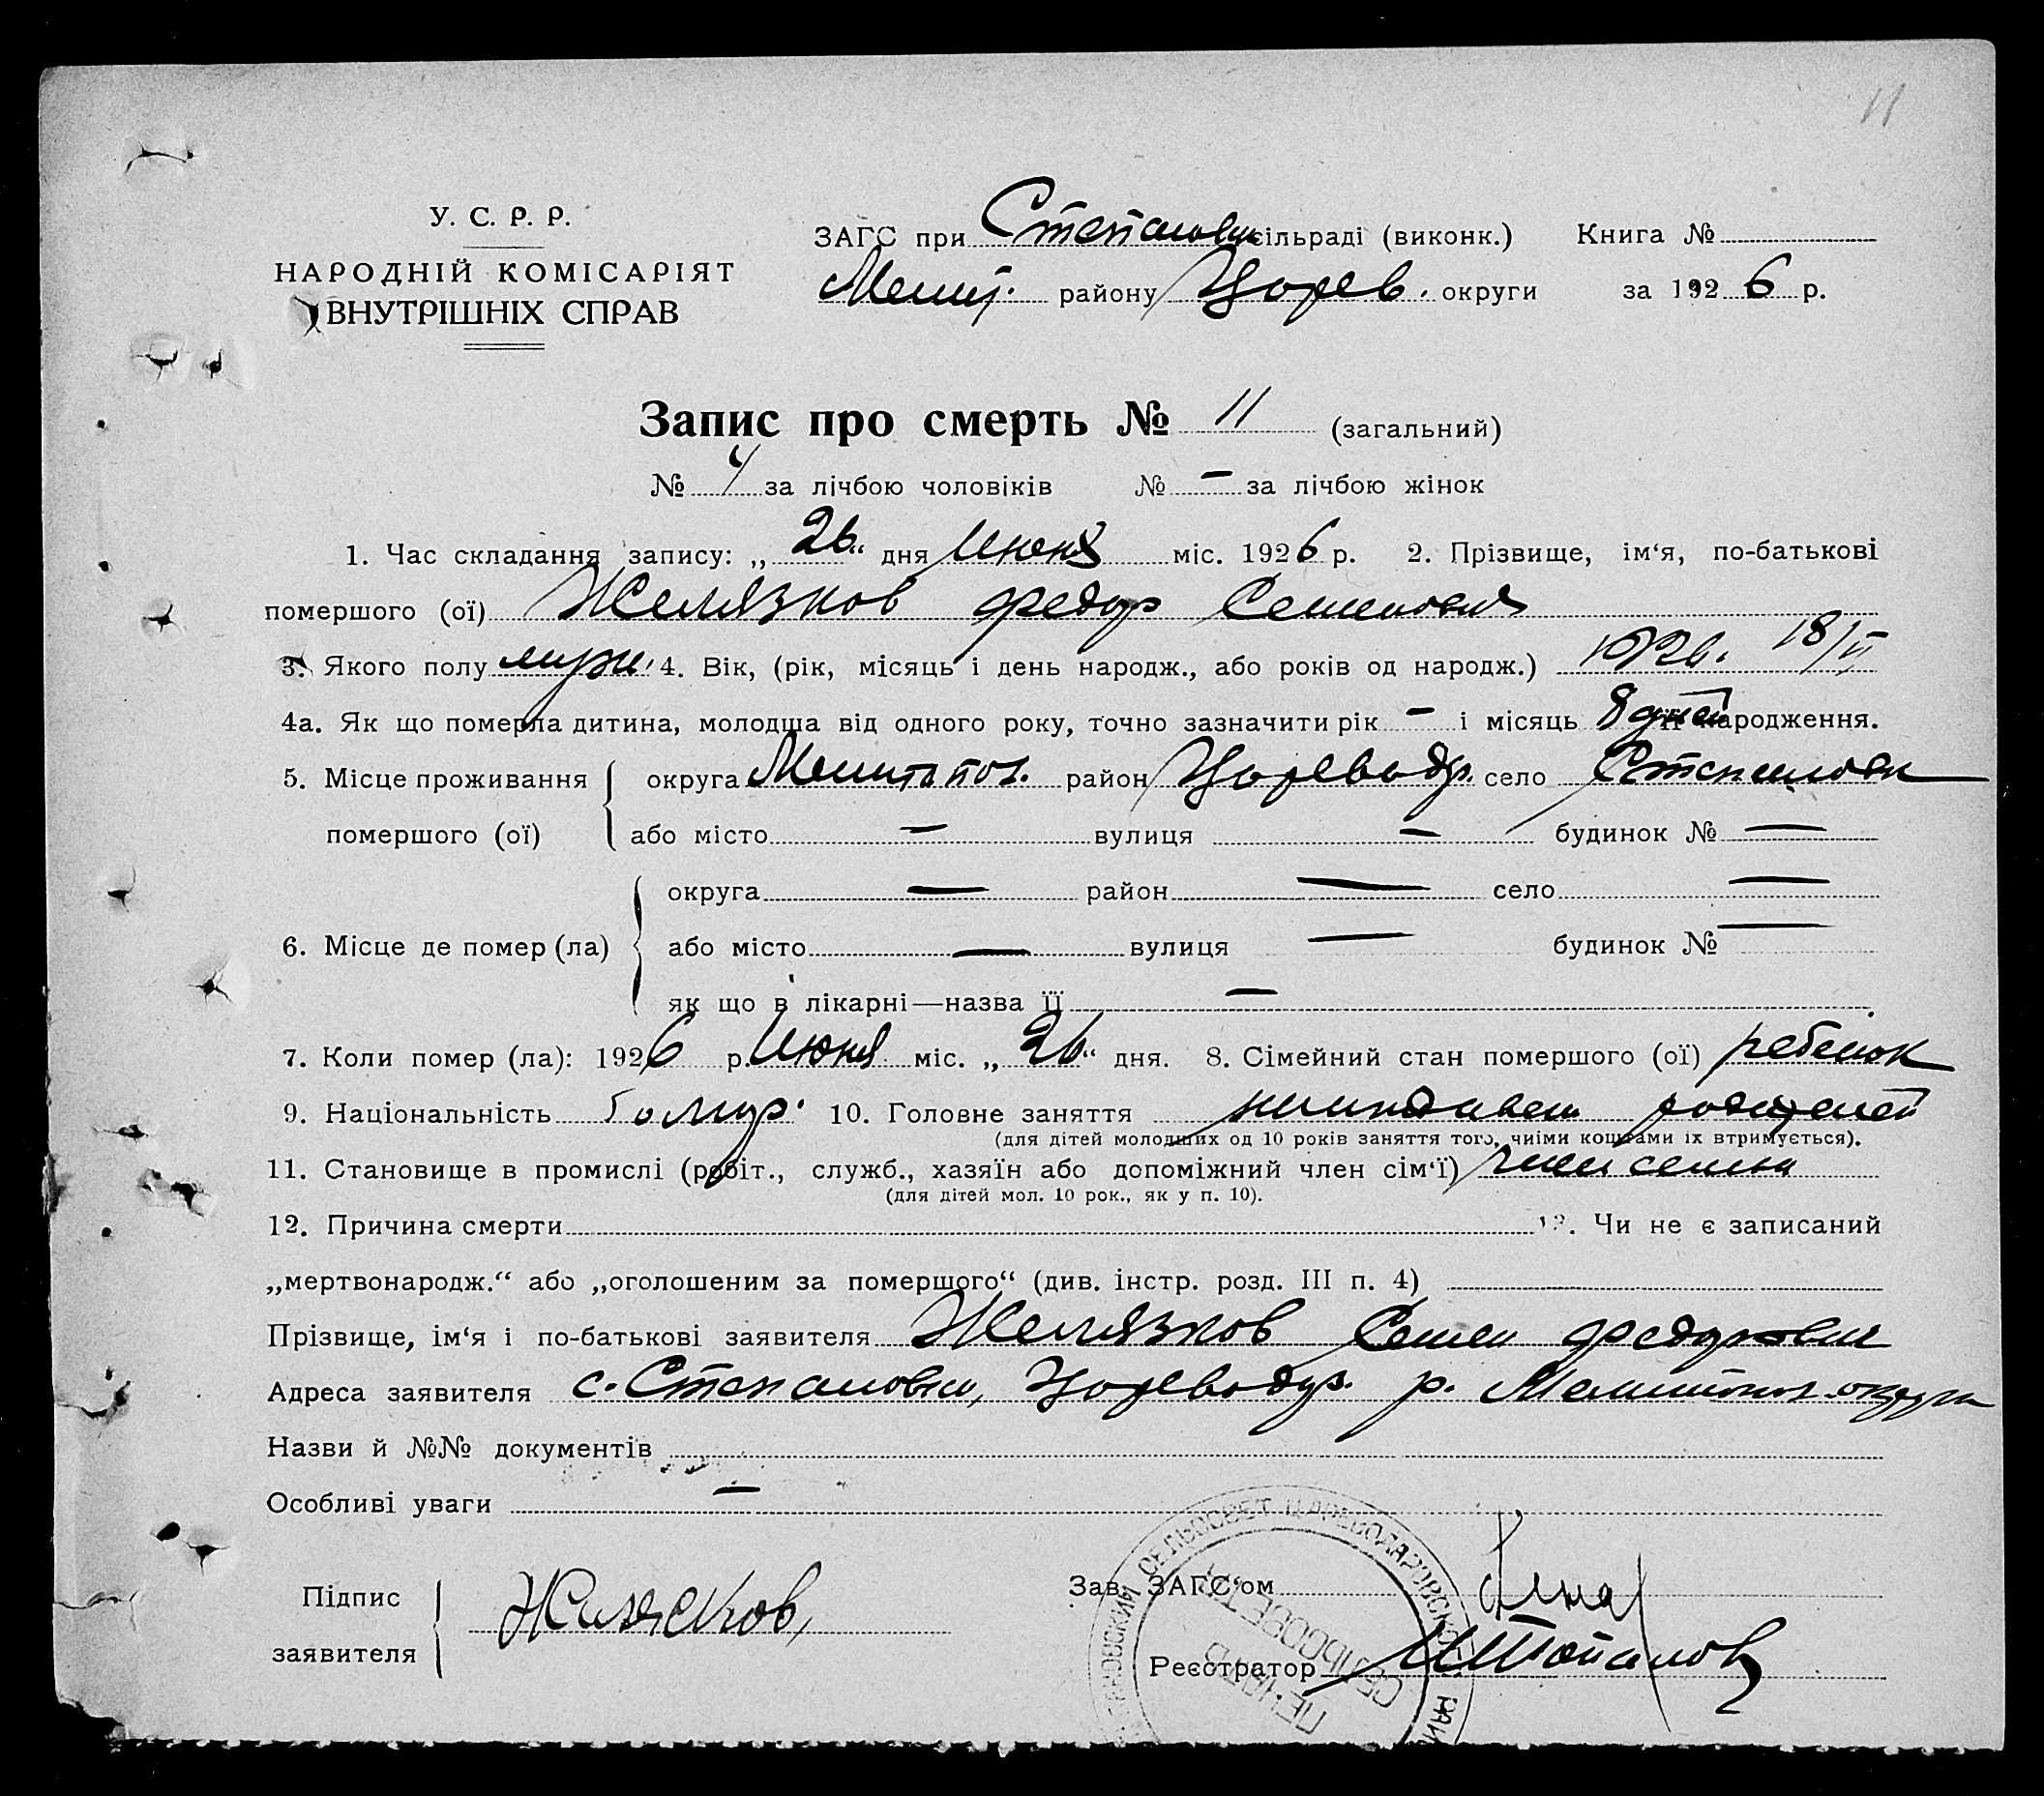 11
У. С. Р. Р.
НАРОДНІЙ КОМІСАРІЯТ
ВНУТРІШНІХ СПРАВ
ЗАГС при Степановк сільраді (виконк.) Книга №
Мелит. району Царев. округи за 1926 р.
Запис про смерть № 11 (загальний)
№ 4 за лічбою чоловіків № – за лічбою жінок
1. Час складання запису: „26“ дня Июня міс. 1926 р. 2. Прізвище, ім‘я, по-батькові
помершого (ої) Желязков Федор Семенович
3. Якого полу муж. 4. Вік, (рік, місяць і день народж., або років од народж.) 18/VI
4а. Як що померла дитина, молодша від одного року, точно зазначити рік – і місяць 8 дней її народження.
5. Місце проживання помершого (ої) округа Мелитопол. район Цареводар. село Степановка
або місто — вулиця — будинок № —
6. Місце де помер (ла) округа — район — село —
або місто — вулиця — будинок № —
як що в лікарні—назва її —
7. Коли помер (ла): 1926 р. Июня міс. „26“ дня. 8. Сімейний стан помершого (ої) ребенок
9. Національність болгар. 10. Головне заняття иждивен родителей
(для дітей молодших од 10 років заняття того, чиїми коштами їх втримується).
11. Становище в промислі (робіт., служб., хазяїн або допоміжний член сім‘ї) член семьи
(для дітей мол. 10 рок., як у п. 10).
12. Причина смерти 13. Чи не є записаний
„мертвонародж.“ або „оголошеним за померщого“ (див. інстр. розд. III п. 4)
Прізвище, ім‘я і по-батькові заявителя Желязков Семен Федорович
Адреса заявителя с. Степановка, Цареводар. р. Мелитопол. округа
Назви й №№ документів
Особливі уваги —
Підпис заявителя Желясков,
Зав. ЗАГС‘ом
Реєстратор И Топалов
СЕЛЬСОВЕТ ЦАРЕВОДАРОВСКОГО РАЙ
ПЕЧАТЬ
СЕЛЬСОВЕТА